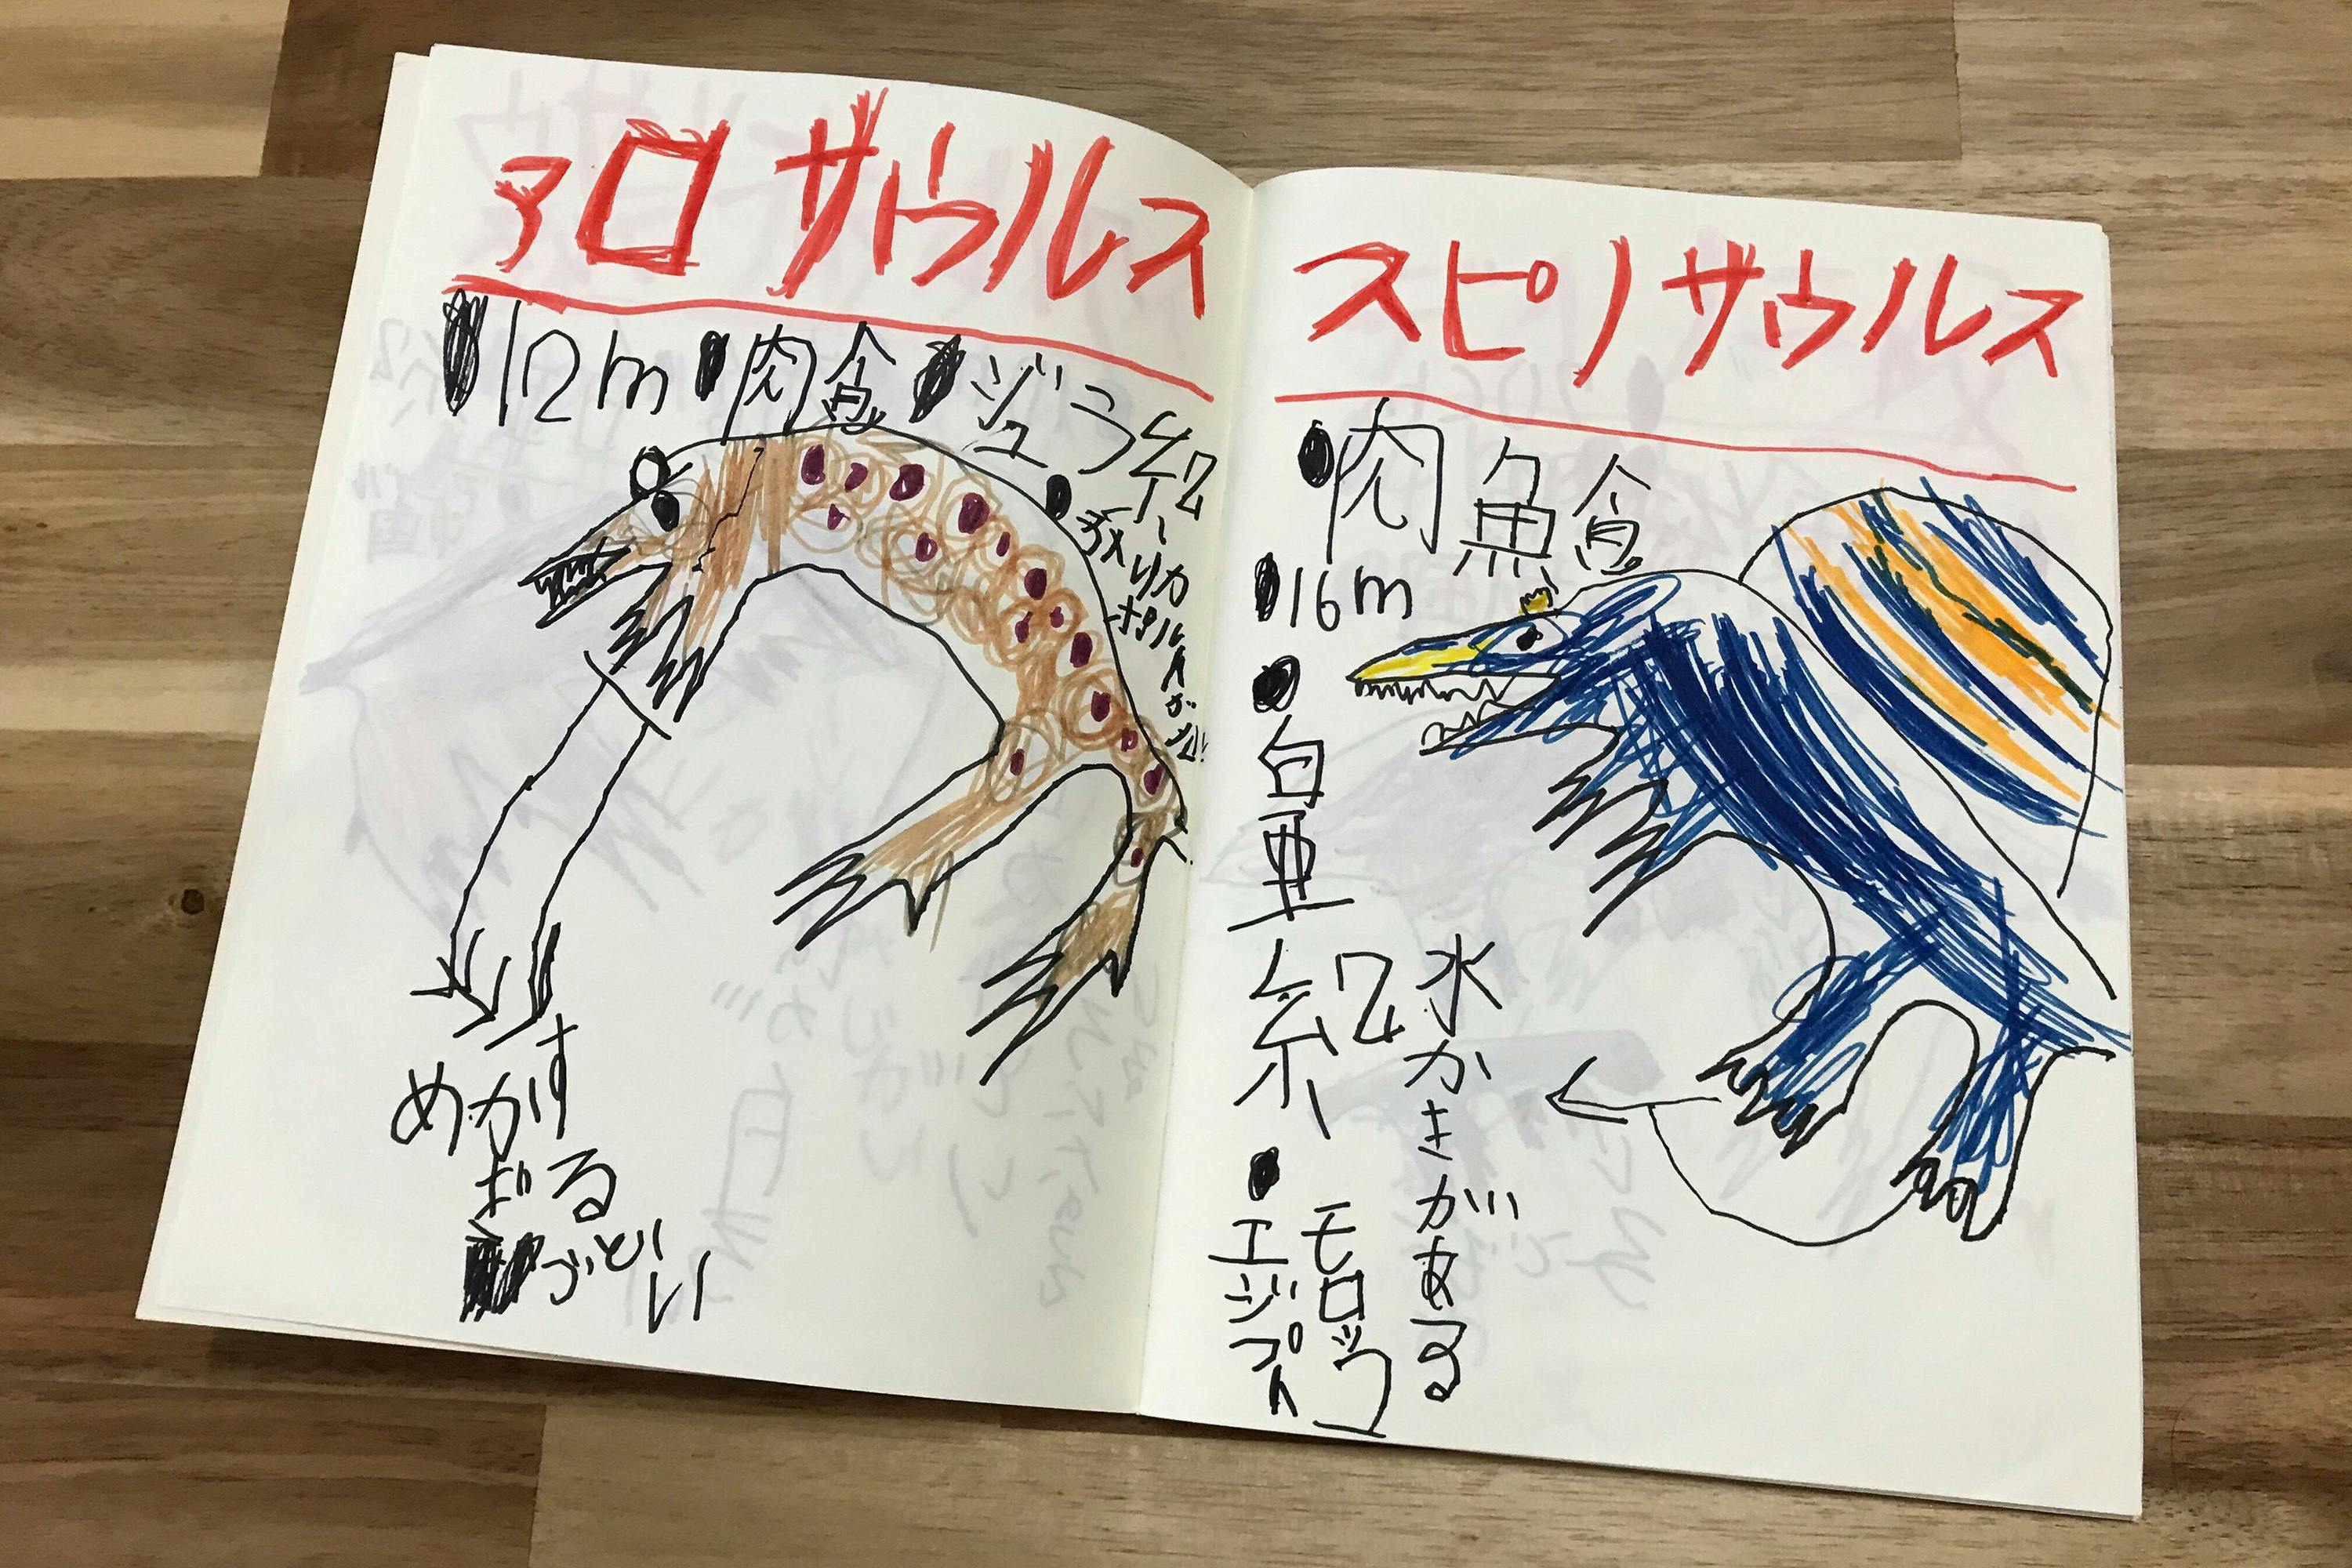 アロザウルス
●12m ●肉食 ●ジュラ紀
●アメリカ
ポルトガル
するどい
めがす
スピノザウルス
●肉魚食
●16m
●白亜紀
●エジプト
モロッコ
水かきがある